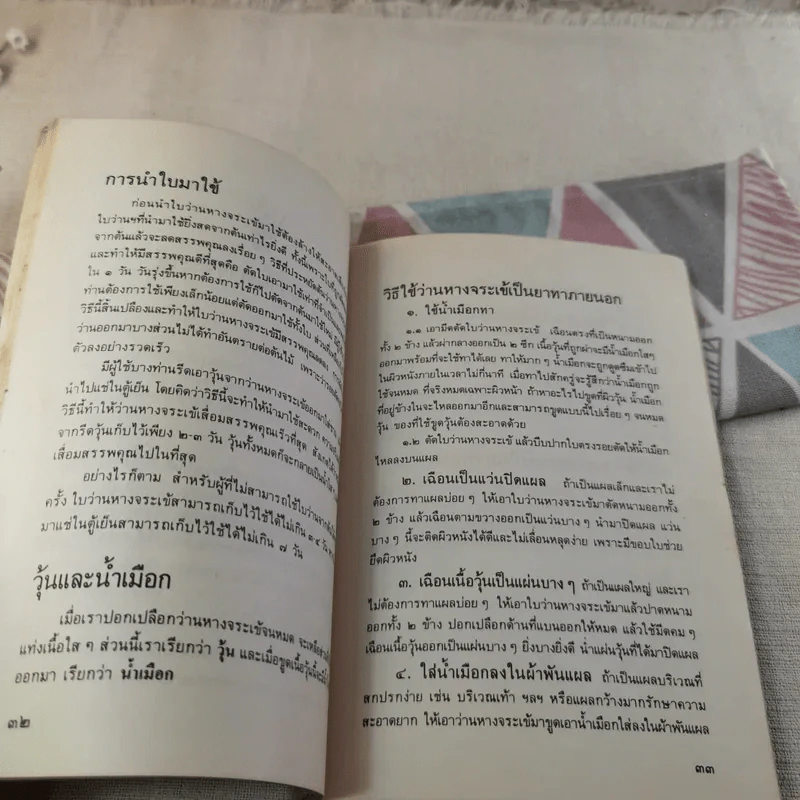 การนำใบมาใช้
ก่อนนำใบว่านหางจระเข้มาใช้ต้องล้างให้สะอาด
ใบว่านฯที่นำมาใช้ยิ่งสดจากต้นเท่าไรยิ่งดี ทั้งนี้เพราะใบที่
จากต้นแล้วจะลดสรรพคุณลงเรื่อย ๆ วิธีที่ประหยัด
และทำให้มีสรรพคุณดีที่สุดคือ ตัดใบเอามาใช้เท่าที่จำเป็น
ใน ๑ วัน วันรุ่งขึ้นหากต้องการใช้ก็ไปตัดจากต้นมาใช้ใหม่
ท่านต้องการใช้เพียงเล็กน้อยแต่ตัดออกมาใช้ทั้งใบ
วิธีนี้สิ้นเปลืองและทำให้ใบว่านหางจระเข้มีสรรพคุณลดลง
ว่านออกมาบางส่วนไม่ได้ทำอันตรายต่อต้นไม้ เพราะ
ตัวลงอย่างรวดเร็ว
มีผู้ใช้บางท่านรีดเอาวุ้นจากว่านหางจระเข้ออกมาใส่
นำไปแช่ในตู้เย็น โดยคิดว่าวิธีนี้จะทำให้นำมาใช้สะดวก
วิธีนี้ทำให้ว่านหางจระเข้เสื่อมสรรพคุณเร็วที่สุด สังเกตได้
จากรีดวุ้นเก็บไว้เพียง ๒-๓ วัน วุ้นทั้งหมดก็จะกลายเป็นน้ำ
เสื่อมสรรพคุณไปในที่สุด
อย่างไรก็ตาม สำหรับผู้ที่ไม่สามารถใช้ใบว่านจากต้น
ครั้ง ใบว่านหางจระเข้สามารถเก็บไว้ใช้ได้ไม่เกิน ๑๔ วัน
มาแช่ในตู้เย็นสามารถเก็บไว้ใช้ได้ไม่เกิน ๗ วัน
วุ้นและน้ำเมือก
เมื่อเราปอกเปลือกว่านหางจระเข้จนหมด จะเหลือ
แท่งเนื้อใส ๆ ส่วนนี้เราเรียกว่า วุ้น และเมื่อขูดเนื้อวุ้นนี้
ออกมา เรียกว่า น้ำเมือก
๓๒
วิธีใช้ว่านหางจระเข้เป็นยาทาภายนอก
๑. ใช้น้ำเมือกทา
๑.๑ เอามีดตัดใบว่านหางจระเข้ เฉือนตรงที่เป็นหนามออก
ทั้ง ๒ ข้าง แล้วผ่ากลางออกเป็น ๒ ซีก เนื้อวุ้นที่ถูกผ่าจะมีน้ำเมือกใสๆ
ออกมาพร้อมที่จะใช้ทาได้เลย ทาให้มาก ๆ น้ำเมือกจะถูกดูดซึมเข้าไป
ในผิวหนังภายในเวลาไม่กี่นาที เมื่อทาไปสักครู่จะรู้สึกว่าน้ำเมือกถูก
ใช้จนหมด ที่จริงหมดเฉพาะผิวหน้า ถ้าหาอะไรไปขูดที่ผิววุ้น น้ำเมือก
ที่อยู่ข้างในจะไหลออกมาอีกและสามารถขูดแบบนี้ไปเรื่อย ๆ จนหมด
วุ้น ของที่ใช้ขูดวุ้นต้องสะอาดด้วย
๑.๒ ตัดใบว่านหางจระเข้ แล้วบีบปากใบตรงรอยตัดให้น้ำเมือก
ไหลลงบนแผล
๒. เฉือนเป็นแว่นปิดแผล ถ้าเป็นแผลเล็กและเราไม่
ต้องการทาแผลบ่อย ๆ ให้เอาใบว่านหางจระเข้มาตัดหนามออกทั้ง
๒ ข้าง แล้วเฉือนตามขวางออกเป็นแว่นบาง ๆ นำมาปิดแผล แว่น
บาง ๆ นี้จะติดผิวหนังได้ดีและไม่เลื่อนหลุดง่าย เพราะมีขอบใบช่วย
ยึดผิวหนัง
๓. เฉือนเนื้อวุ้นเป็นแผ่นบาง ๆ ถ้าเป็นแผลใหญ่ และเรา
ไม่ต้องการทาแผลบ่อย ๆ ให้เอาใบว่านหางจระเข้มาแล้วปาดหนาม
ออกทั้ง ๒ ข้าง ปอกเปลือกด้านที่แบนออกให้หมด แล้วใช้มีดคม ๆ
เฉือนเนื้อวุ้นออกเป็นแผ่นบาง ๆ ยิ่งบางยิ่งดี นำแผ่นวุ้นที่ได้มาปิดแผล
๔. ใส่น้ำเมือกลงในผ้าพันแผล ถ้าเป็นแผลบริเวณที่
สกปรกง่าย เช่น บริเวณเท้า ฯลฯ หรือแผลกว้างมากรักษาความ
สะอาดยาก ให้เอาว่านหางจระเข้มาขูดเอาน้ำเมือกใส่ลงในผ้าพันแผล
๓๓